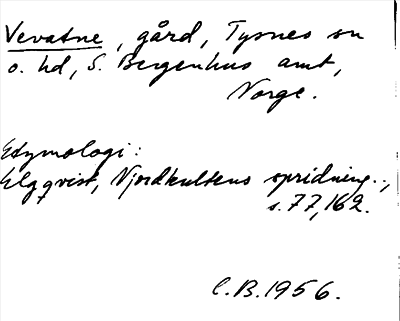 Vevatne, gård, Tysnes sn
o. hd, S. Bergenhus amt,
Norge.
Etymologi:
Elgqvist, Njordkultens spridning..,
s. 77, 162.
C.B. 1956.